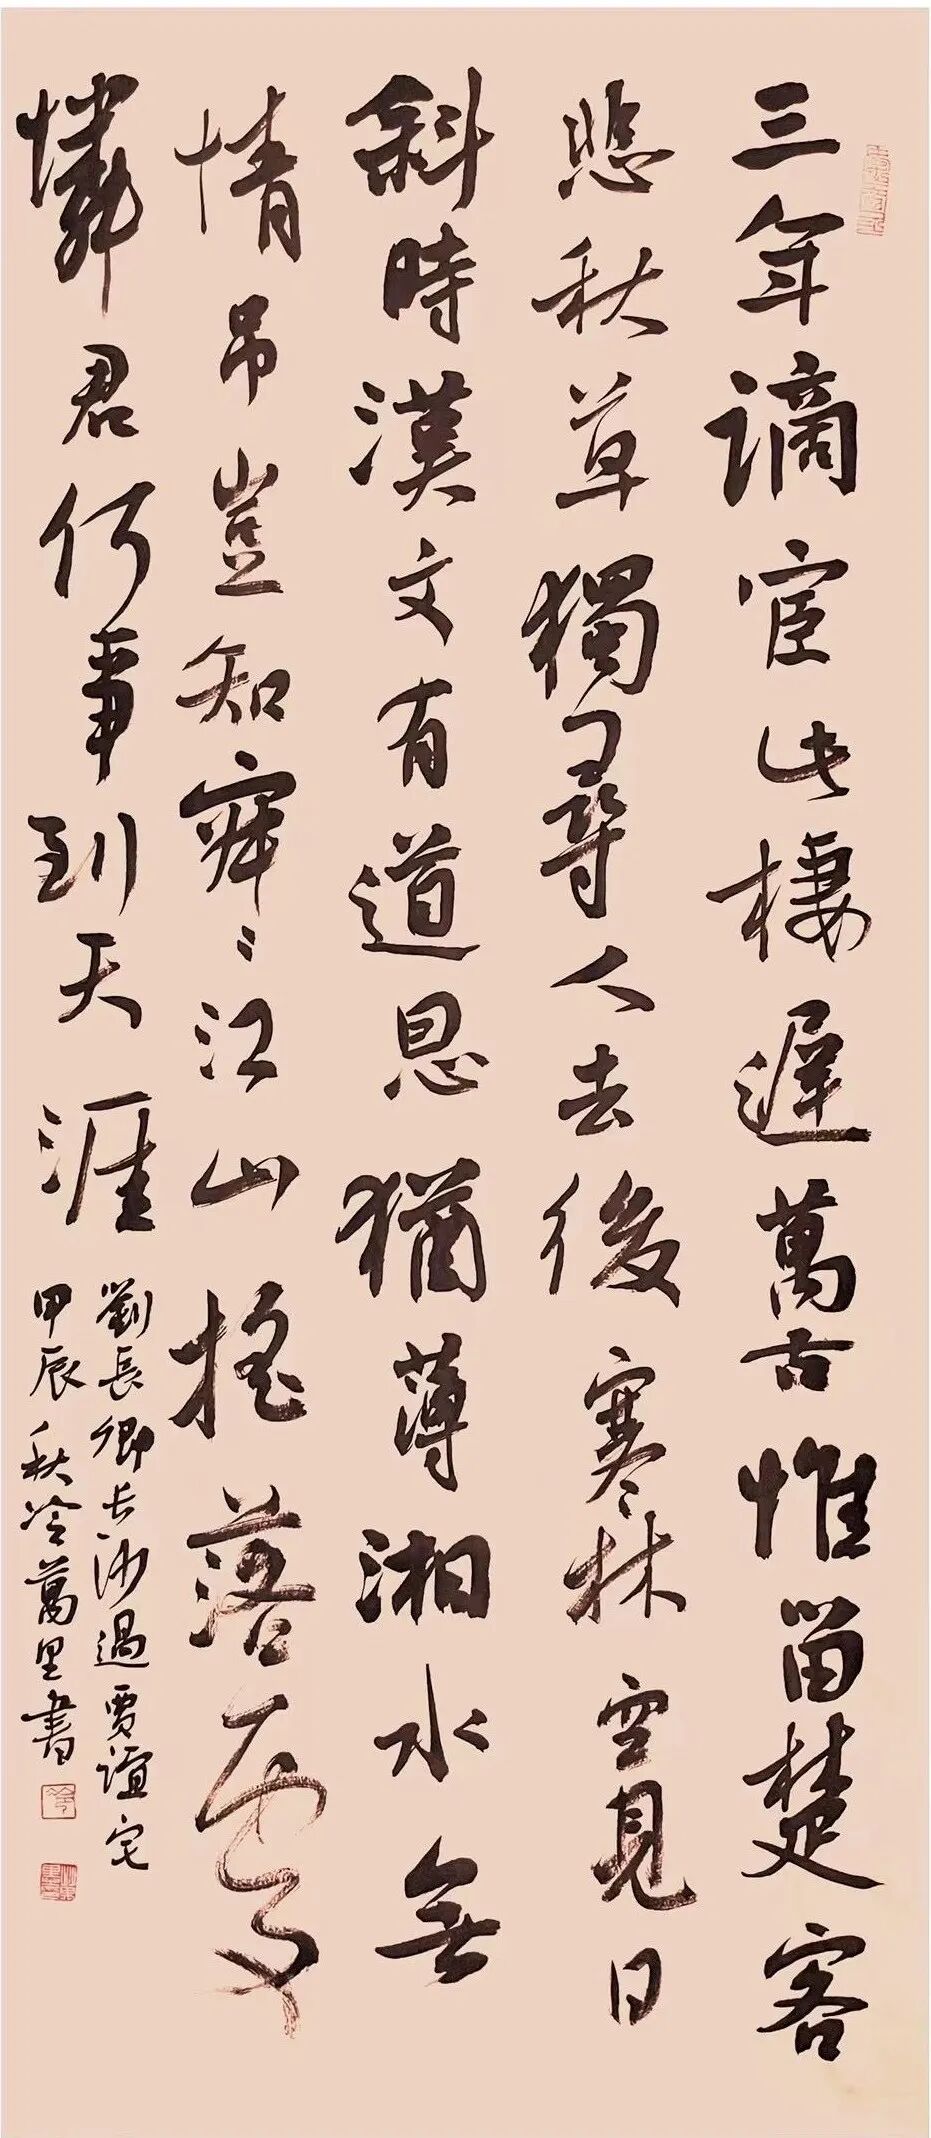 三年謫宦此棲遲萬古惟留楚客
悲秋草獨尋人去後寒林空見日
斜時漢文有道恩猶薄湘水無
情吊豈知寂〻江山搖落處
憐君何事到天涯
劉長卿長沙過賈誼宅
甲辰秋冷萬里書